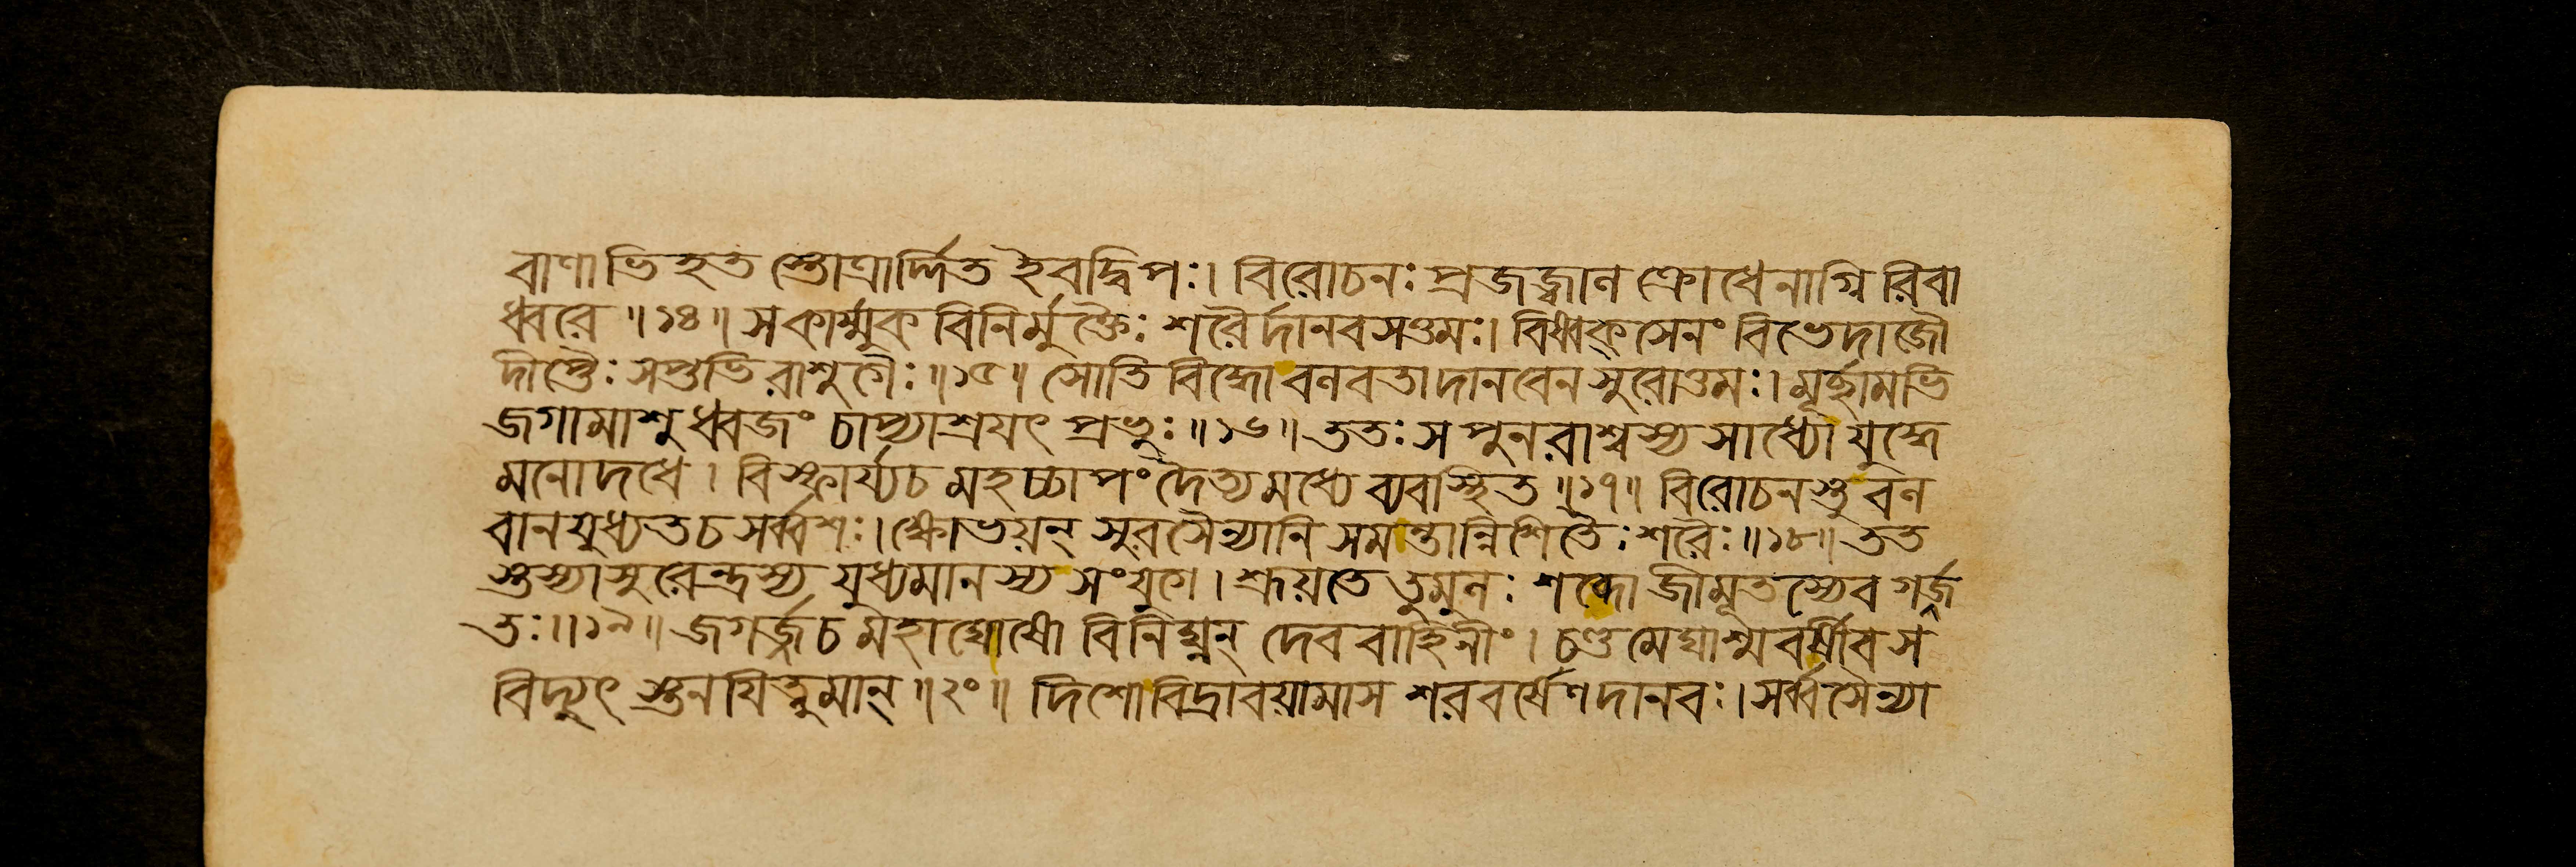 বাণাভিহত স্তোত্রার্দ্দিত ইবদ্বিপঃ। বিরোচনঃ প্রজজ্বাল ক্রোধেনাগ্নি রিবা
ধ্বরে ॥১৪॥ সকার্ম্মুক বিনির্মুক্তৈঃ শরৈর্দানবসত্তমঃ। বিষ্বক্সেনং বিভেদাজৌ
দীপ্তৈঃ সপ্তভি রাশুগৈঃ ॥১৫॥ সোতি বিদ্ধো বলবতা দানবেন সুরোত্তমঃ। মূর্চ্ছামভি
জগামাশু ধ্বজং চাপ্যাশ্রযৎ প্রভুঃ ॥১৬॥ ততঃ স পুনরাশ্বস্য সাধ্যো যুদ্ধে
মনোদধে। বিস্ফার্য্যচ মহচ্চাপং দৈত্যমধ্যে ব্যবস্থিত ॥১৭॥ বিরোচনস্তু বল
বানযুধ্যত চ সর্ব্বশঃ। ক্ষোভয়ন্ সুরসৈন্যানি সমন্তান্নিশিতৈঃ শরৈঃ ॥১৮॥ তত
স্তস্যাসুরেন্দ্রস্য যুধ্যমানস্য সংযুগে। শ্রূয়তে তুমুলঃ শব্দো জীমূতস্যেব গর্জ্জ
তঃ ॥১৯॥ জগর্জ্জ চ মহাঘোষো বিনিঘ্নন্ দেব বাহিনীং। চণ্ডমেঘাশ্মবর্ষীব স
বিদ্যুৎ স্তনযিত্নুমান্ ॥২০॥ দিশোবিদ্রাবয়ামাস শরবর্ষেণ দানবঃ। সর্ব্বসৈন্যা